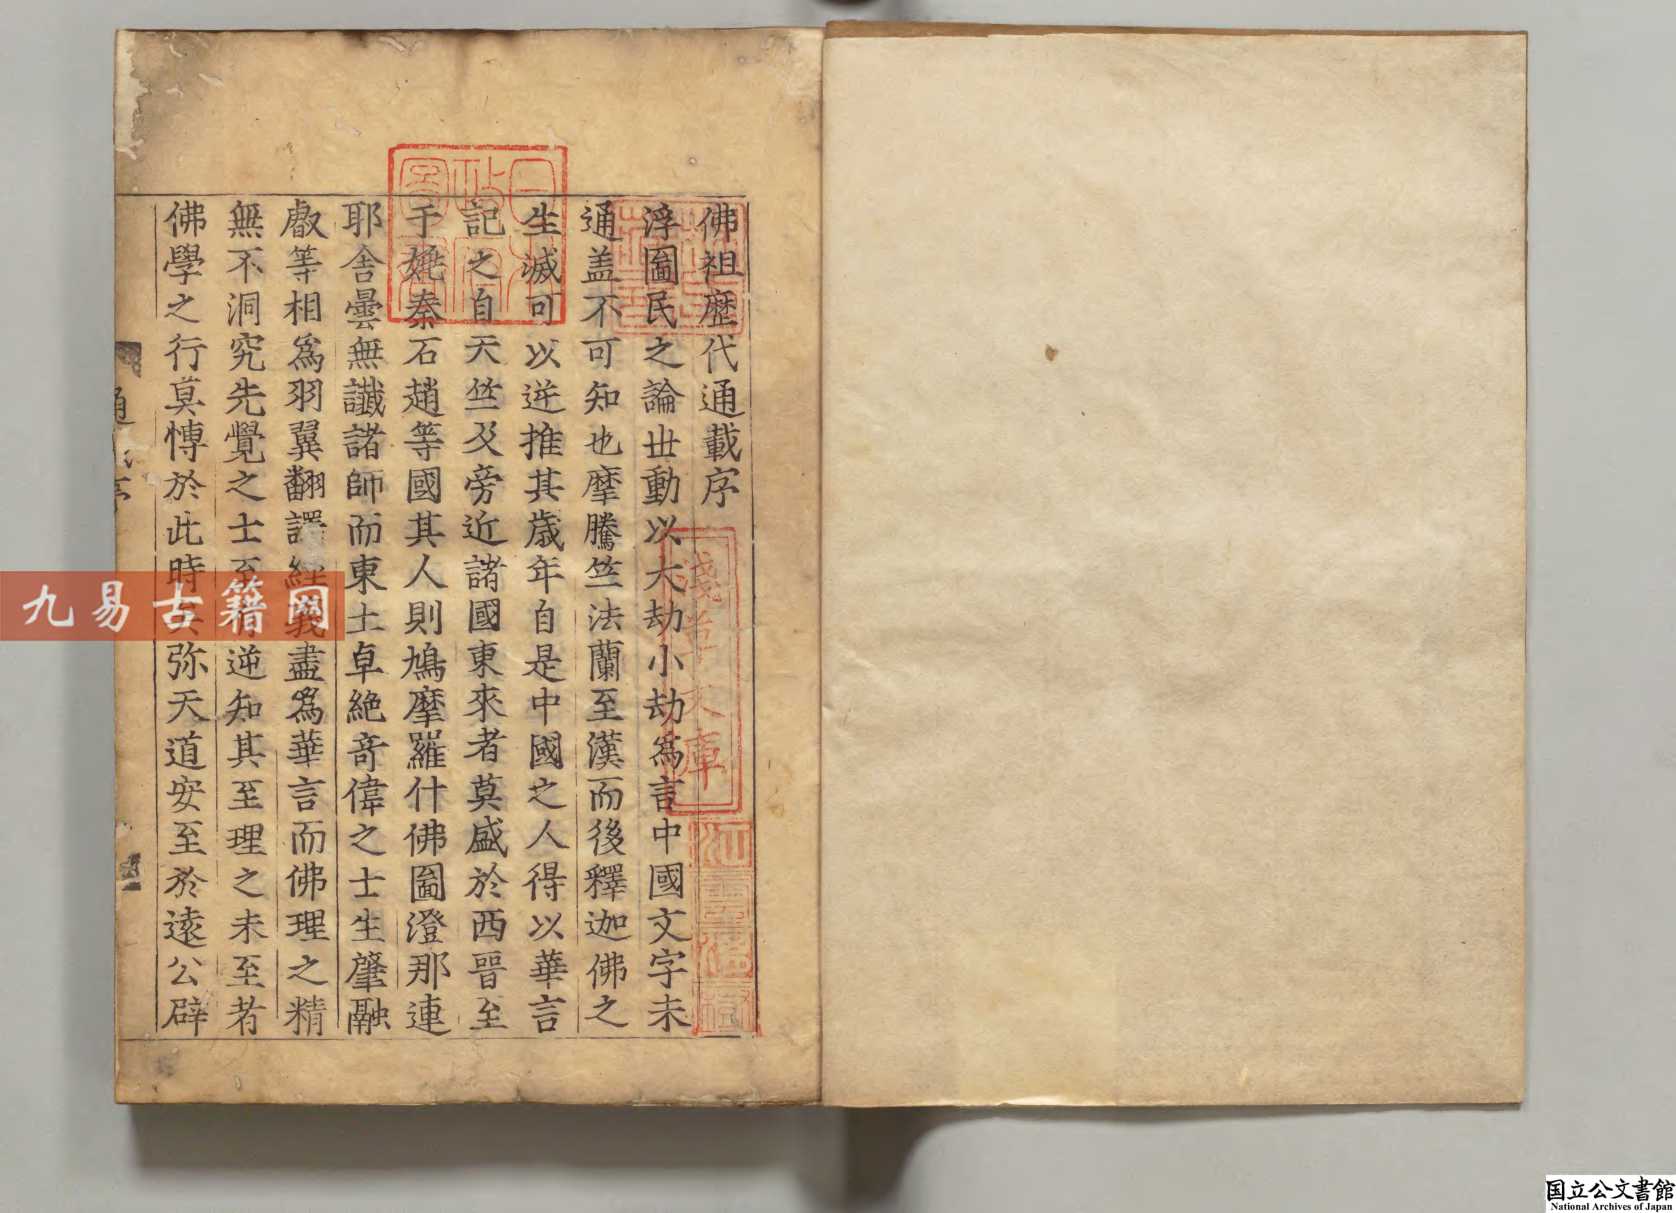 佛祖歷代通載序
浮圖民之論世動以大劫小劫爲言中國文字未
通盖不可知也摩騰竺法蘭至漢而後釋迦佛之
生滅可以逆推其歲年自是中國之人得以華言
記之自天竺及旁近諸國東來者莫盛於西晉至
于姚秦石趙等國其人則鳩摩羅什佛圖澄那連
耶舍曇無讖諸師而東土卓絶奇偉之士生肇融
叡等相爲羽翼翻譯經義盡爲華言而佛理之精
無不洞究先覺之士至有逆知其至理之未至者
佛學之行莫愽於此時矣弥天道安至於遠公辟
日本政府圖書
淺草文庫
江雲渭樹
九易古籍网
国立公文書館
National Archives of Japan